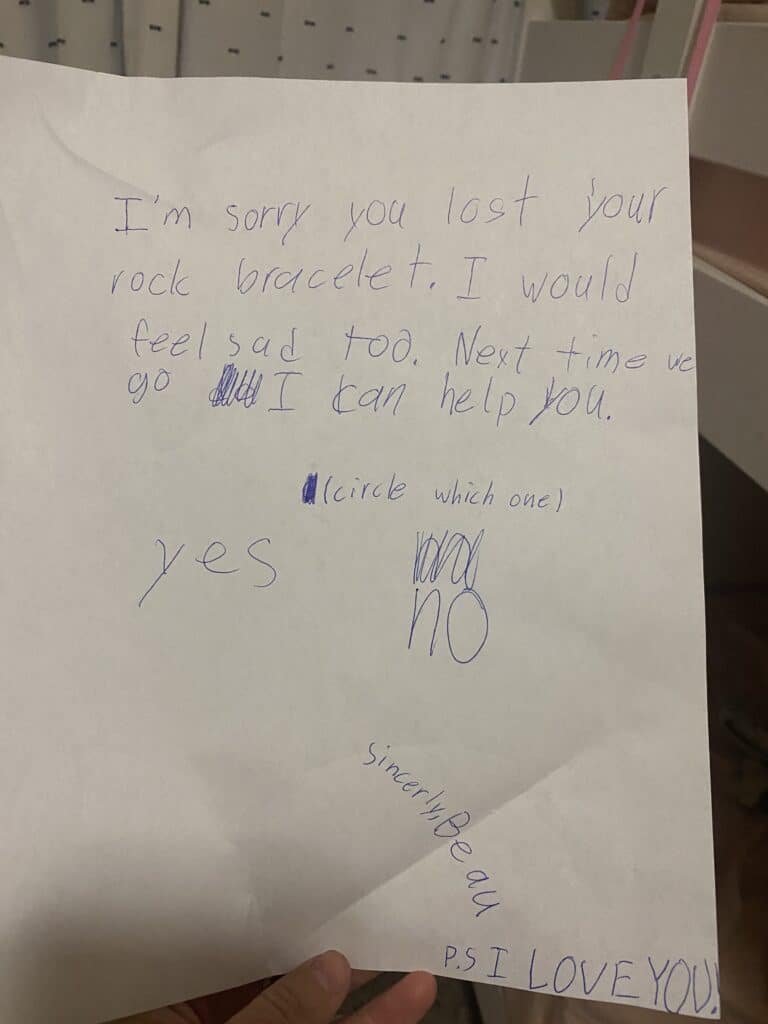 I'm sorry you lost your
rock bracelet. I would
feel sad too. Next time we
go I can help you.
(circle which one)
yes
no
Sincerly, Beau
P.S I LOVE YOU!